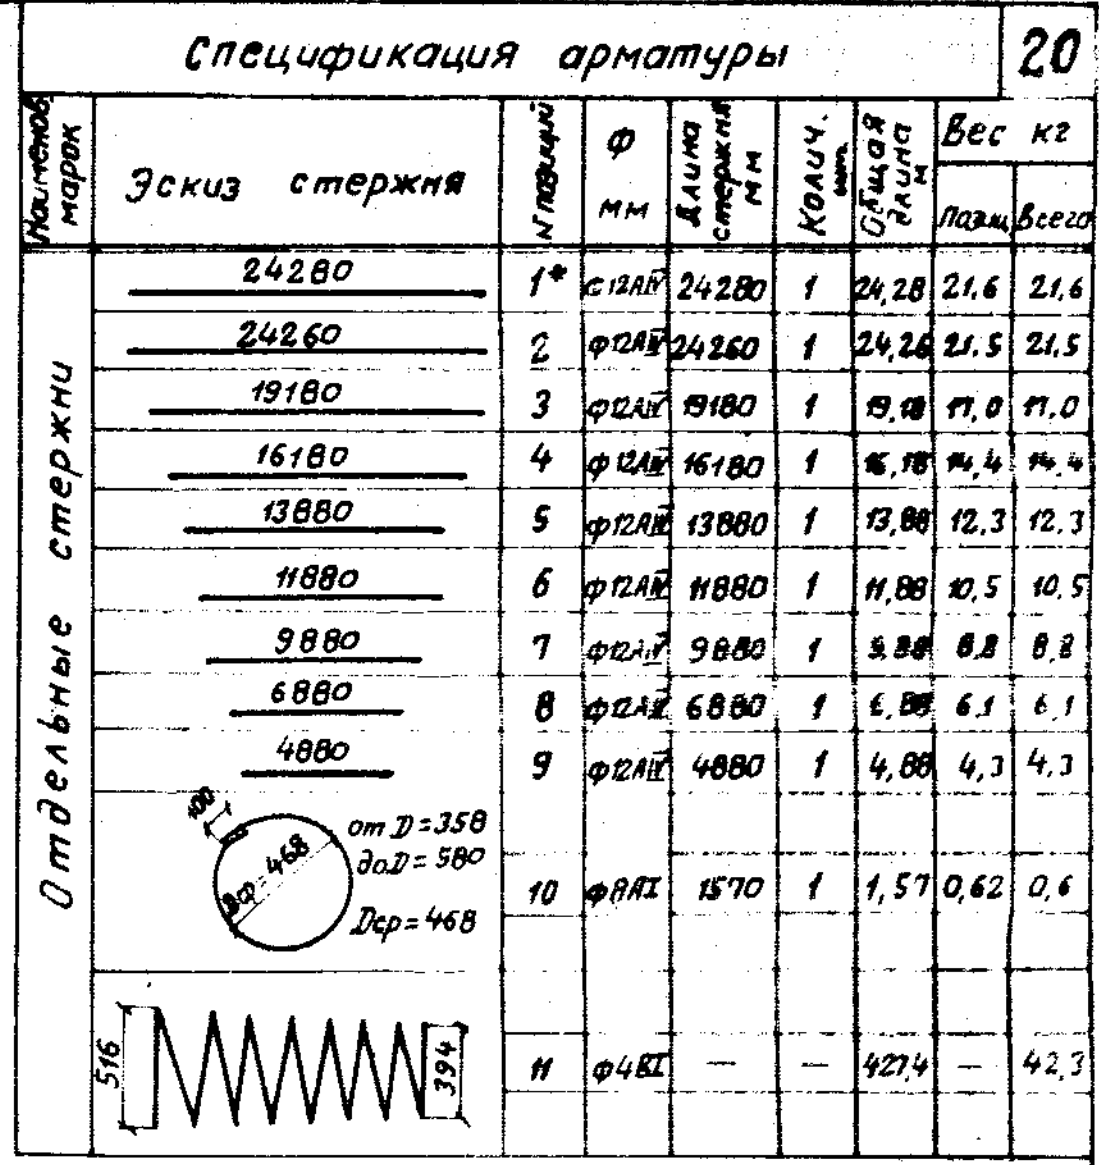 Спецификация арматуры 20
Наименов. марок Эскиз стержня N позиций Ф мм Длина стержня мм Колич. шт. Общая длина м Вес кг
Позиц. Всего
Отдельные стержни
24280 1* 12АIV 24280 1 24,28 21,6 21,6
24260 2 ф12АIV 24260 1 24,26 21.5 21,5
19180 3 ф12АIV 19180 1 19,18 17,0 17,0
16180 4 ф12АIV 16180 1 16,18 14,4 14,4
13880 5 ф12АIV 13880 1 13,88 12,3 12,3
11880 6 ф12АIV 11880 1 11,88 10,5 10,5
9880 7 ф12АIV 9880 1 9,88 8,8 8,8
6880 8 ф12АIV 6880 1 6,88 6,1 6,1
4880 9 ф12АIV 4880 1 4,88 4,3 4,3
100 от D=358
до D=580
Dср=468
Dср=468
10 ф8АI 1570 1 1,57 0,62 0,6
516 394 11 ф4ВI — — 427,4 — 42,3